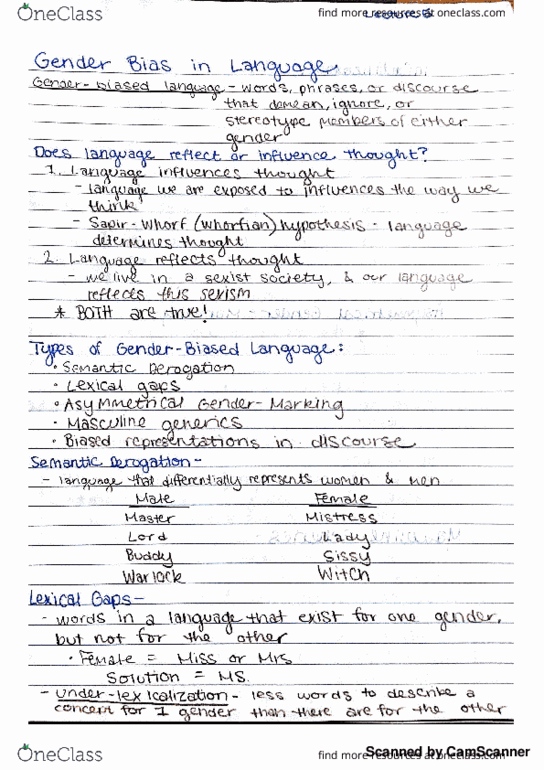 OneClass
find more resources at oneclass.com
Gender Bias in Language
Gender-biased language - words, phrases, or discourse
that demean, ignore, or
stereotype members of either
gender
Does language reflect or influence thought?
1. Language influences thought
- language we are exposed to influences the way we
think
- Sapir-Whorf (whorfian) hypothesis - language
determines thought
2. Language reflects thought
- we live in a sexist society, & our language
reflects this sexism
* BOTH are true!
Types of Gender-Biased Language:
• Semantic Derogation
• Lexical gaps
• Asymmetrical Gender-Marking
• Masculine generics
• Biased representations in discourse
Semantic Derogation -
- language that differentially represents women & men
Male Female
Master Mistress
Lord Lady
Buddy Sissy
Warlock Witch
Lexical Gaps -
- words in a language that exist for one gender,
but not for the other
• Female = Miss or Mrs.
Solution = MS.
- under-lexicalization - less words to describe a
concept for 1 gender than there are for the other
OneClass
find more resources at oneclass.com
Scanned by CamScanner